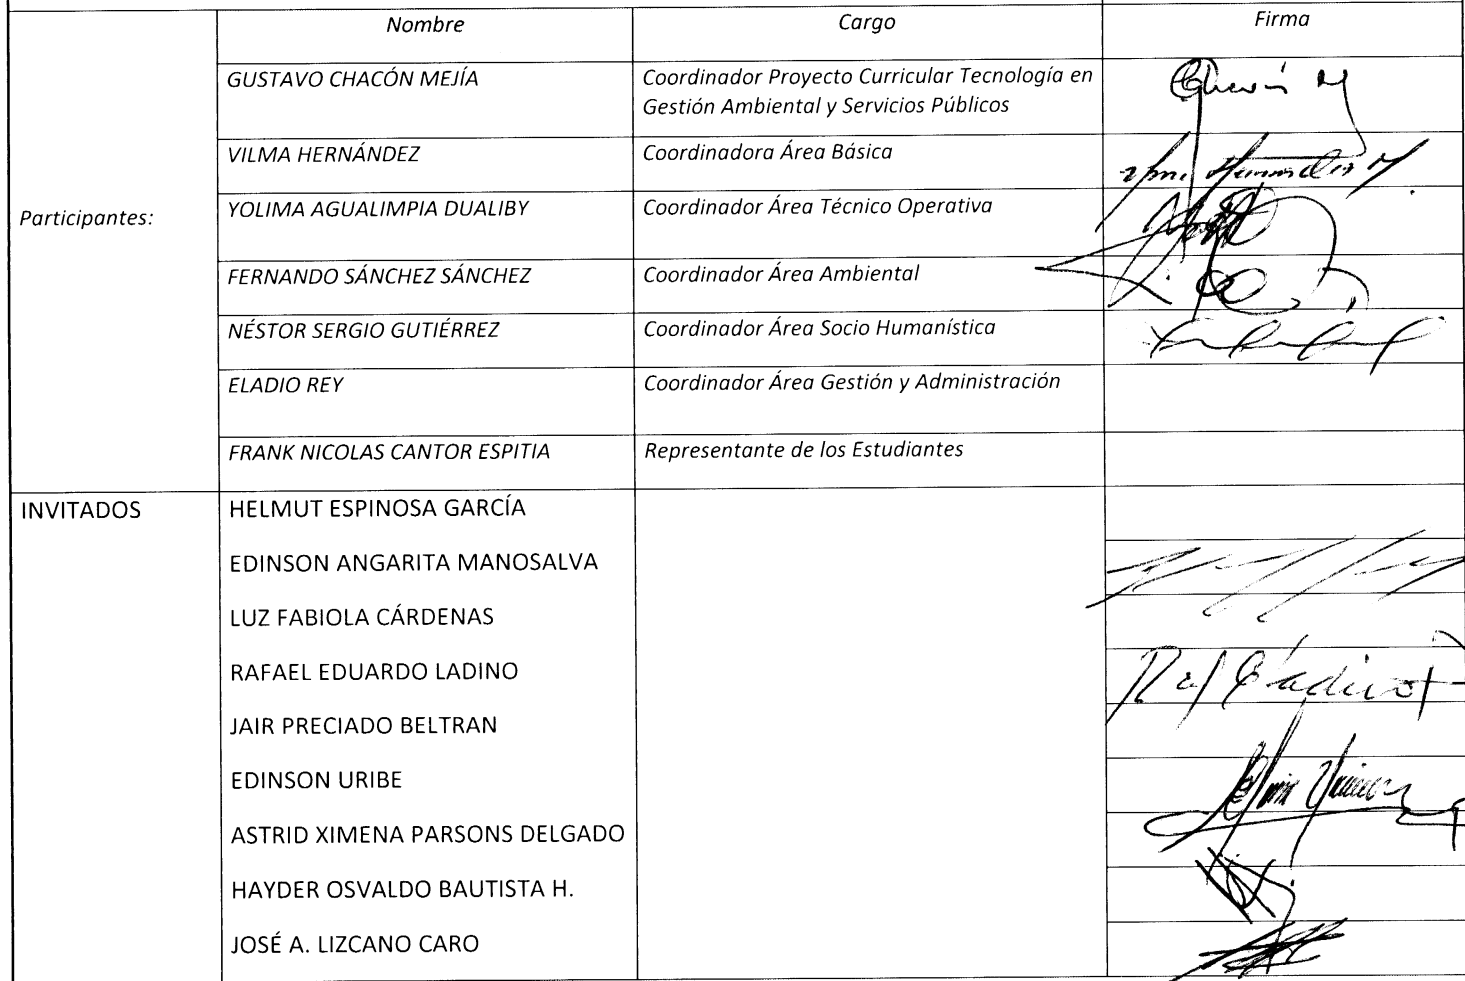 Nombre Cargo Firma
GUSTAVO CHACÓN MEJÍA Coordinador Proyecto Curricular Tecnología en
Gestión Ambiental y Servicios Públicos
VILMA HERNÁNDEZ Coordinadora Área Básica
Participantes: YOLIMA AGUALIMPIA DUALIBY Coordinador Área Técnico Operativa
FERNANDO SÁNCHEZ SÁNCHEZ Coordinador Área Ambiental
NÉSTOR SERGIO GUTIÉRREZ Coordinador Área Socio Humanística
ELADIO REY Coordinador Área Gestión y Administración
FRANK NICOLAS CANTOR ESPITIA Representante de los Estudiantes
INVITADOS HELMUT ESPINOSA GARCÍA
EDINSON ANGARITA MANOSALVA
LUZ FABIOLA CÁRDENAS
RAFAEL EDUARDO LADINO
JAIR PRECIADO BELTRAN
EDINSON URIBE
ASTRID XIMENA PARSONS DELGADO
HAYDER OSVALDO BAUTISTA H.
JOSÉ A. LIZCANO CARO